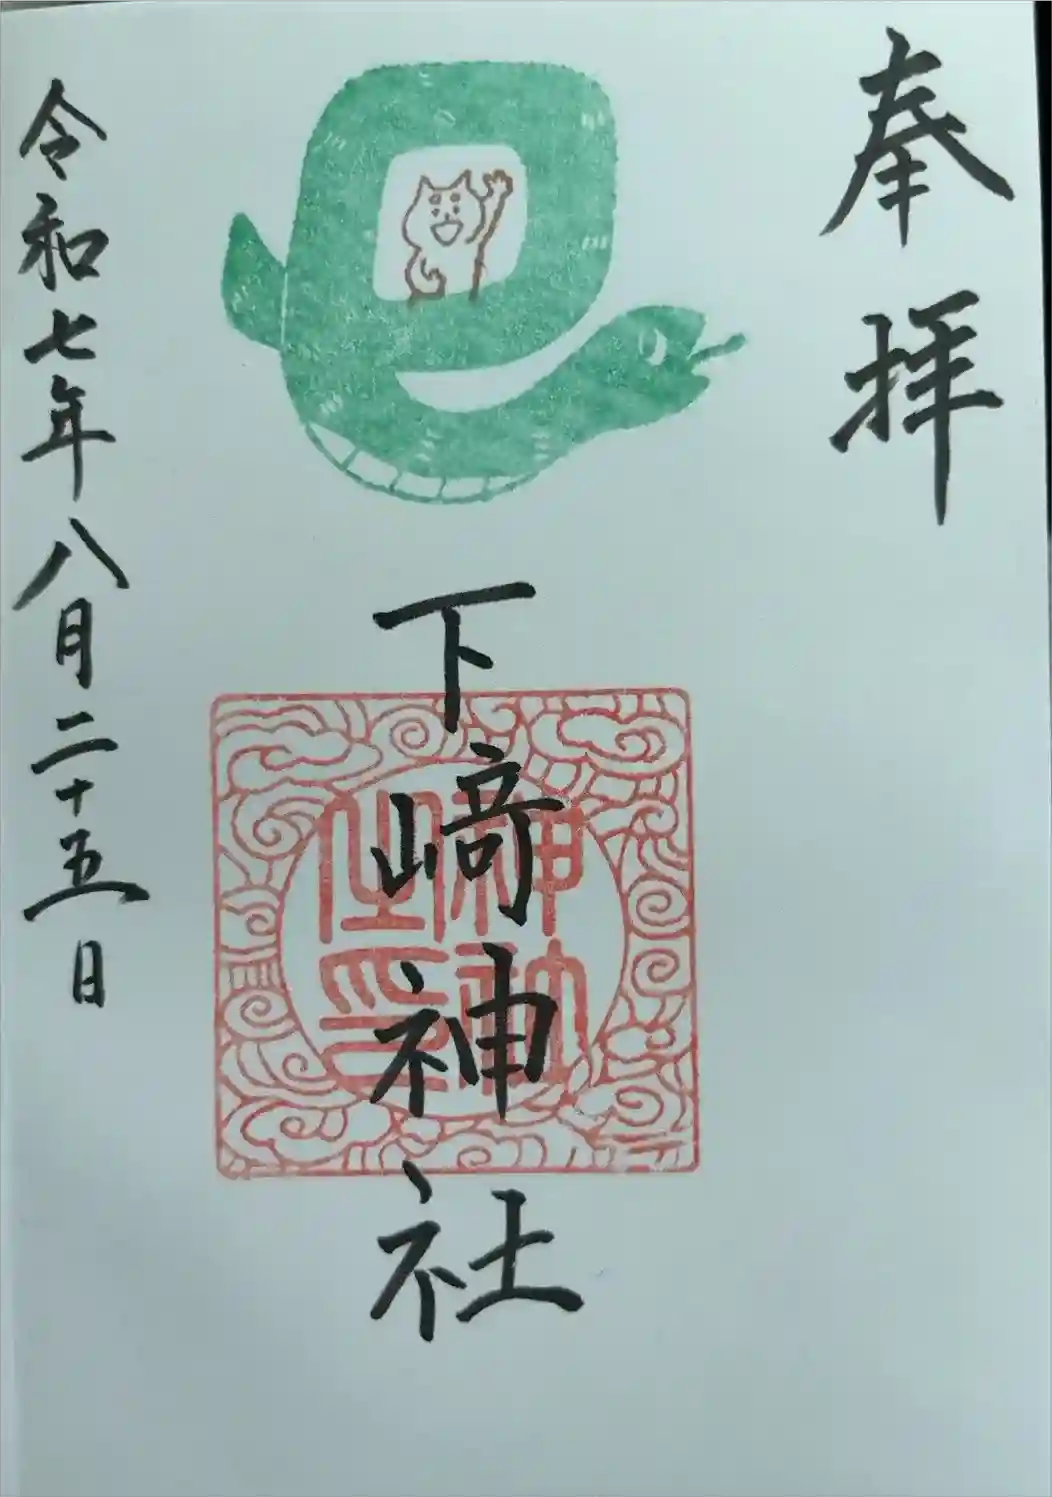 奉拝
下﨑神社
神社之印
令和七年八月二十五日